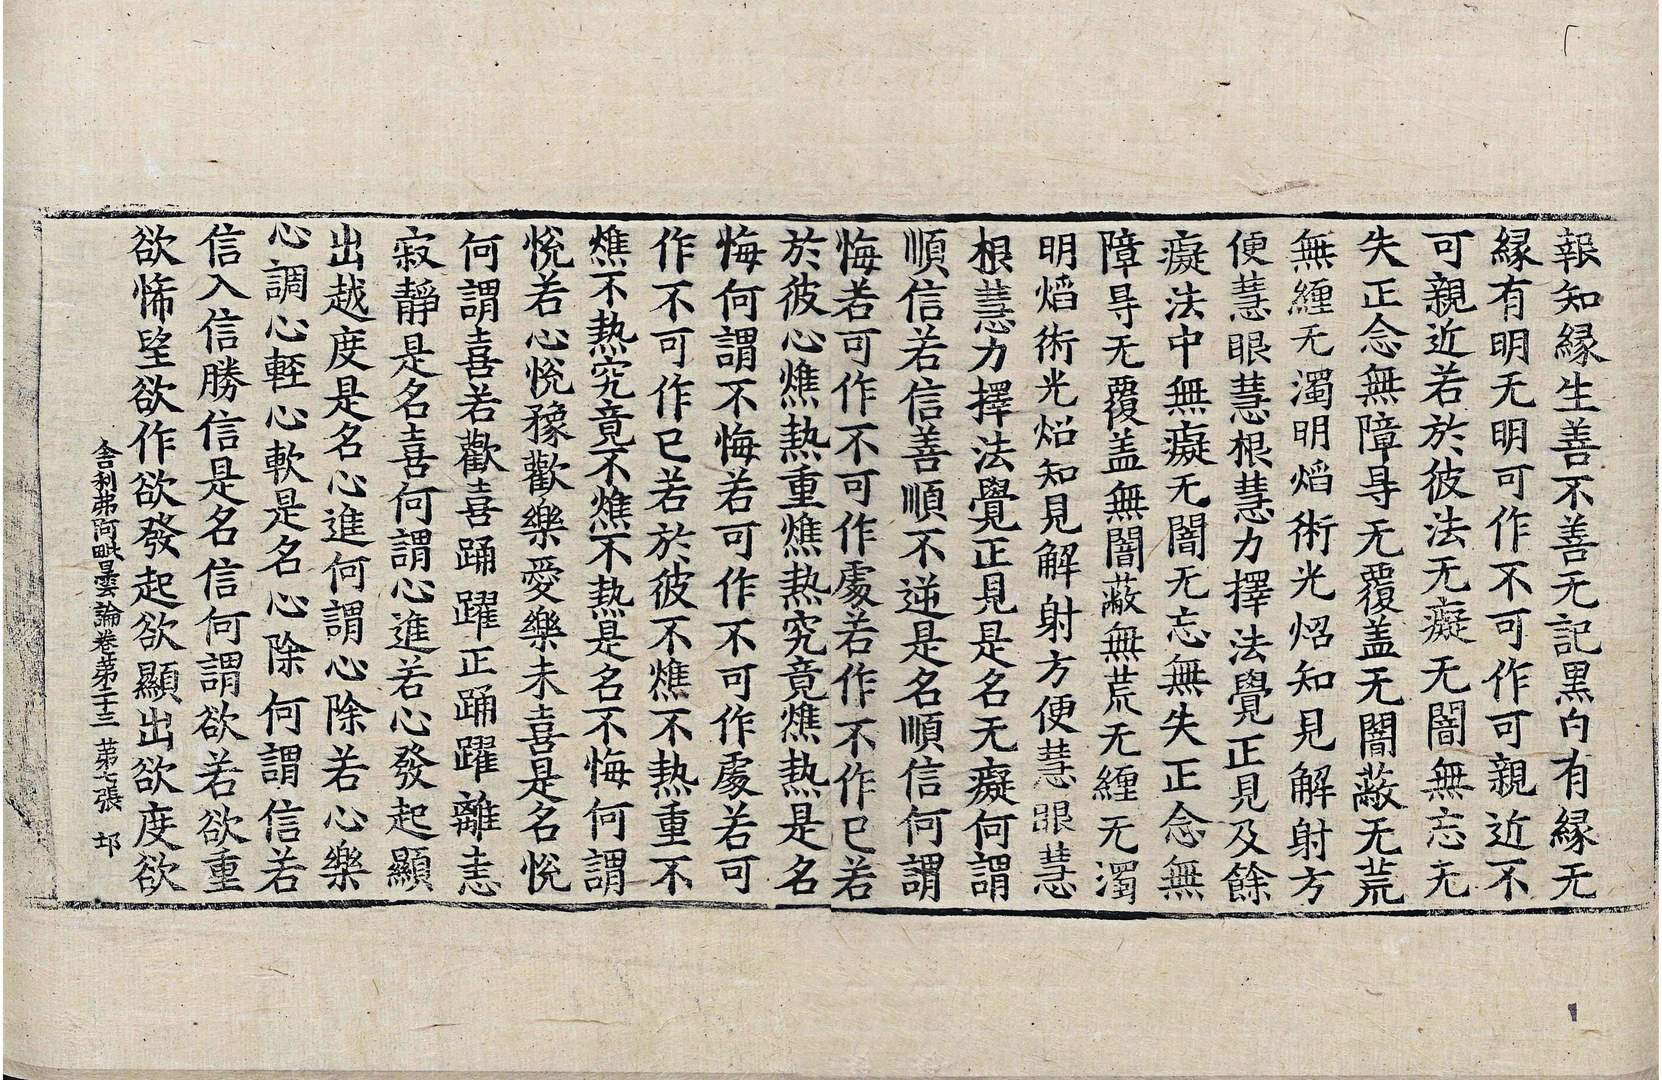 報知縁生善不善无記黒白有縁无
縁有明无明可作不可作可親近不
可親近若於彼法无癡无闇無忘无
失正念無障㝵无覆盖无闇蔽无荒
無纏无濁明熖術光炤知見解射方
便慧眼慧根慧力擇法覺正見及餘
癡法中無癡无闇无忘無失正念無
障㝵无覆盖無闇蔽無荒无纏无濁
明熖術光炤知見解射方便慧眼慧
根慧力擇法覺正見是名无癡何謂
順信若信善順不逆是名順信何謂
悔若可作不可作處若作不作已若
於彼心燋熱重燋熱究竟燋熱是名
悔何謂不悔若可作不可作處若可
作不可作已若於彼不燋不熱重不
燋不熱究竟不燋不熱是名不悔何謂
悅若心悅豫歡樂愛樂未喜是名悅
何謂喜若歡喜踊躍正踊躍離恚
寂靜是名喜何謂心進若心發起顯
出越度是名心進何謂心除若心樂
心調心輕心軟是名心除何謂信若
信入信勝信是名信何謂欲若欲重
欲悕望欲作欲發起欲顯出欲度欲
舎利弗阿毗曇論卷第二十三 第七張 邙